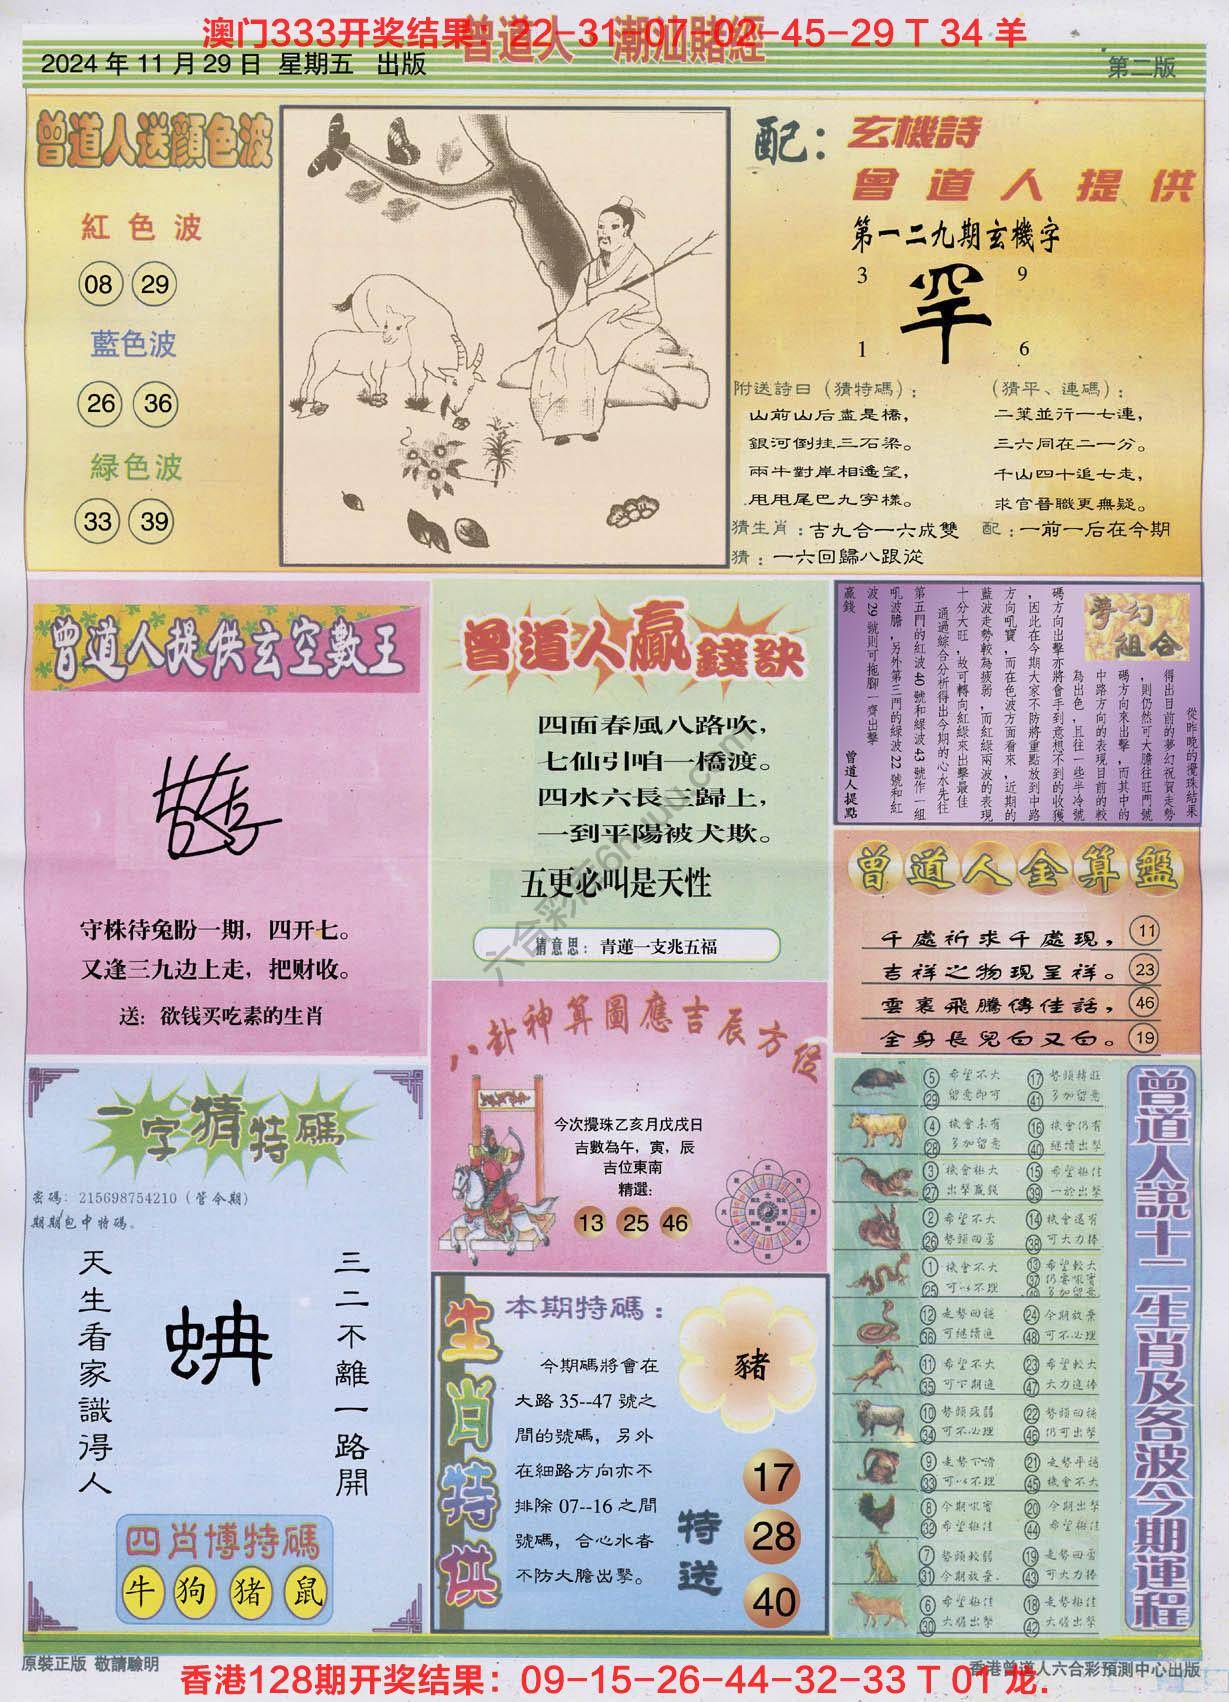 澳门333开奖结果：22-31-07-02-45-29 T 34 羊
曾道人 潮汕賭經
2024 年 11 月 29 日 星期五 出版
第二版
曾道人送顏色波
紅色波
08 29
藍色波
26 36
緑色波
33 39
配：玄機詩
曾道人提供
第一二九期玄機字
3 9
罕
1 6
附送詩曰（猜特碼）：
山前山后盡是橋，
銀河倒挂三石梁。
兩牛對岸相遙望，
甩甩尾巴九字樣。
（猜平、連碼）：
二葉並行一七連，
三六同在二一分。
千山四十追七走，
求官晉職更無疑。
猜生肖：吉九合一六成雙
配：一前一后在今期
猜：一六回歸八跟從
曾道人提供玄空數王
守株待兔盼一期，四开七。
又逢三九边上走，把财收。
送：欲钱买吃素的生肖
曾道人贏錢訣
四面春風八路吹，
七仙引咱一橋渡。
四水六長三歸上，
一到平陽被犬欺。
五更必叫是天性
猜意思：青蓮一支兆五福
六合彩库6huuu.com
夢幻組合
從昨晚的攪珠結果
得出目前的夢幻祝賀走勢
，則仍然可大膽往旺門號
碼方向來出擊，而其中的
中路方向的表現目前的較
為出色，且往一些半冷號
碼方向出擊亦將會手到意想不到的收獲
，因此在今期大家不防將重點放到中路
方向吼寶，而在色波方面看來，近期的
藍波走勢較為疲弱，而紅綠兩波的表現
十分大旺，故可轉向紅綠來出擊最佳
通過綜合分析得出今期的心水先往
第五門的紅波40號和綠波43號作一組
吼波膽，另外第三門的綠波22號和紅
波29號則可拖腳一齊出擊
贏錢
曾道人提點
曾道人金算盤
千處祈求千處現， 11
吉祥之物現呈祥。 23
雲裏飛騰傳佳話， 46
全身長兒白又白。 19
八卦神算圖應吉辰方位
今次攪珠乙亥月戊戌日
吉數為午，寅，辰
吉位東南
精選：
13 25 46
一字猜特碼
密碼：215698754210（管今期）
期期包中特碼。
三二不離一路開
天生看家識得人
四肖博特碼
牛 狗 猪 鼠
生肖特供
本期特碼：
豬
今期碼將會在
大路 35--47 號之
間的號碼，另外
在細路方向亦不
排除 07--16 之間
號碼，合心水者
不防大膽出擊。
特送
17
28
40
曾道人說十二生肖及各波今期運程
⑤ 希望不大 ⑰ 勢頭轉旺
㉙ 留意即可 ㊶ 多加留意
④ 機會未有 ⑯ 機會仍有
㉘ 多加留意 ㊵ 繼續出擊
③ 機會極大 ⑮ 希望極佳
㉗ 出擊贏錢 ㊴ 一於出擊
② 希望不大 ⑭ 機會還有
㉖ 勢頭回勇 ㊳ 可大力捧
① 機會不大 ⑬ 希望較大
㉕ 可以不理 ㊲ 仍要吼實
⑫ 走勢回穩 ㉔ 今期放棄
㊱ 可繼續追 ㊽ 可不必理
⑪ 希望不大 ㉓ 希望較大
㉟ 可下期追 ㊼ 大力追捧
⑩ 勢頭疲弱 ㉒ 勢頭回穩
㉞ 可不必理 ㊻ 仍可出擊
⑨ 走勢下滑 ㉑ 走勢平穩
㉝ 可以不理 ㊺ 機會不大
⑧ 今期吼實 ⑳ 今期出擊
㉜ 希望極佳 ㊹ 希望極佳
⑦ 勢頭較弱 ⑲ 走勢回勇
㉛ 今期放棄. ㊸ 可大力捧
⑥ 希望極佳 ⑱ 走勢極佳
㉚ 大膽出擊 ㊷ 大膽出擊
原裝正版 敬請驗明
香港曾道人六合彩預測中心出版
香港128期开奖结果：09-15-26-44-32-33 T 01 龙.